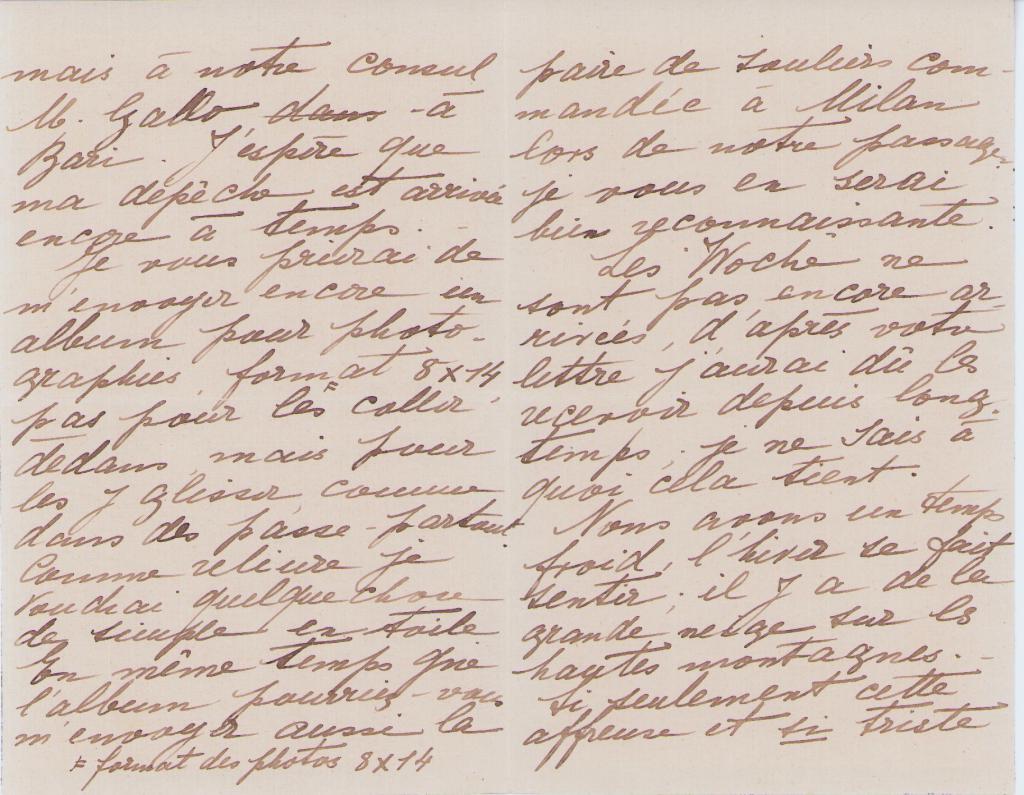 mais à notre consul
M. Gallo dans - à
Bari. J'espère que
ma depêche est arrivée
encore à temps. -
Je vous prierai de
m'envoyer encore un
album pour photo-
graphies, format 8x14
pas pour les coller
dedans, mais pour
les y glisser comme
dans des passe-partout
Comme reliure je
voudrai quelque chose
de simple en toile
En même temps que
l'album pourriez-vous
m'envoyer aussi la
= format des photos 8x14
paire de souliers com-
mandée à Milan
lors de notre passage,
je vous en serai
bien reconnaissante.
Les Woche ne
sont pas encore ar-
rivées, d'après votre
lettre j'aurai dû les
recevoir depuis long-
temps, je ne sais à
quoi cela tient.
Nous avons un temps
froid, l'hiver se fait
sentir, il y a de la
grande neige sur les
hautes montagnes. -
Si seulement cette
affreuse et si triste